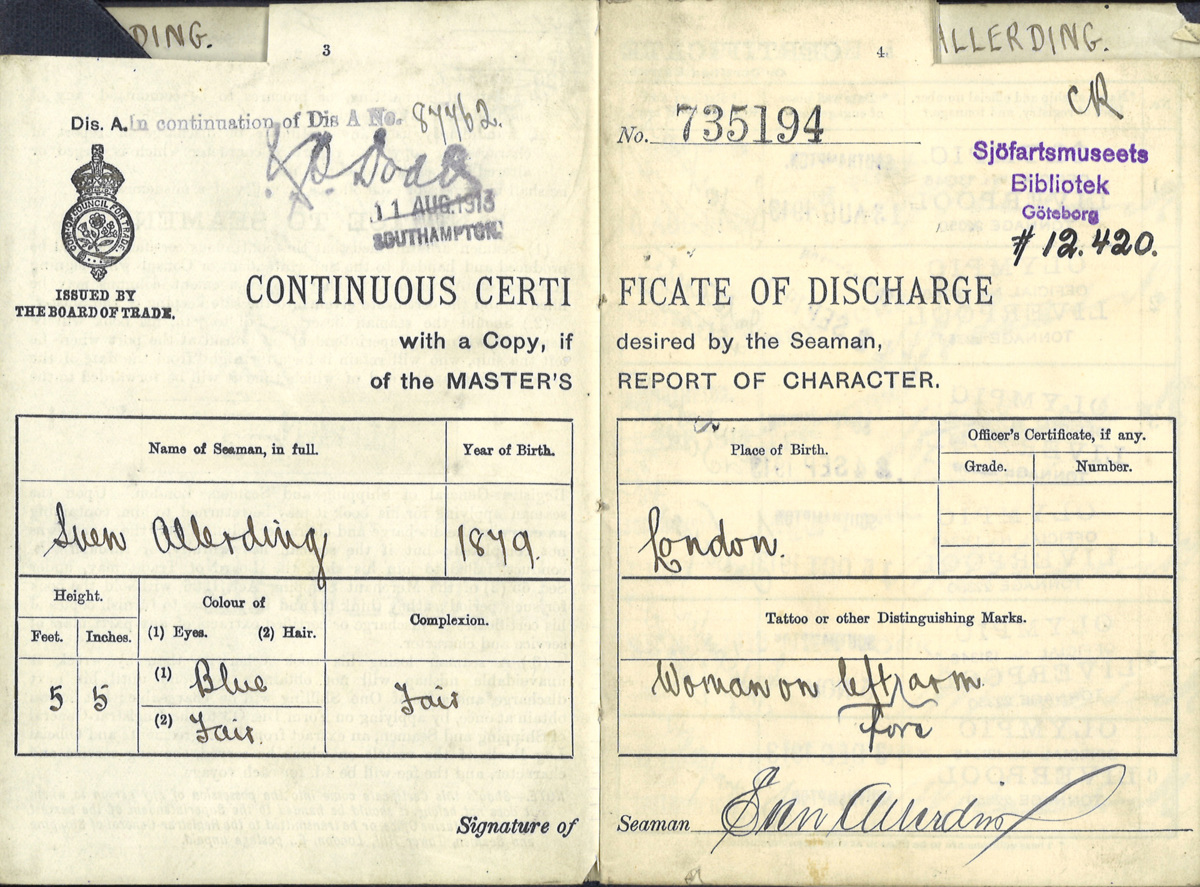 DING.
3
Dis. A. In continuation of Dis A No. 87462.
11 AUG.1913
SOUTHAMPTON.
ISSUED BY
THE BOARD OF TRADE.
CONTINUOUS CERTI
with a Copy, if
of the MASTER'S
Name of Seaman, in full.
Year of Birth.
Sven Allerding
1879.
Height.
Feet.
Inches.
Colour of
(1) Eyes.
(2) Hair.
Complexion.
5
5
(1) Blue
(2) Fair.
Fair
Signature of
ALLERDING.
4
CR
No. 735194
Sjöfartsmuseets
Bibliotek
Göteborg
# 12.420.
FICATE OF DISCHARGE
desired by the Seaman,
REPORT OF CHARACTER.
Place of Birth.
Officer's Certificate, if any.
Grade.
Number.
London.
Tattoo or other Distinguishing Marks.
Woman on left arm.
fore
Seaman Sven Allerding